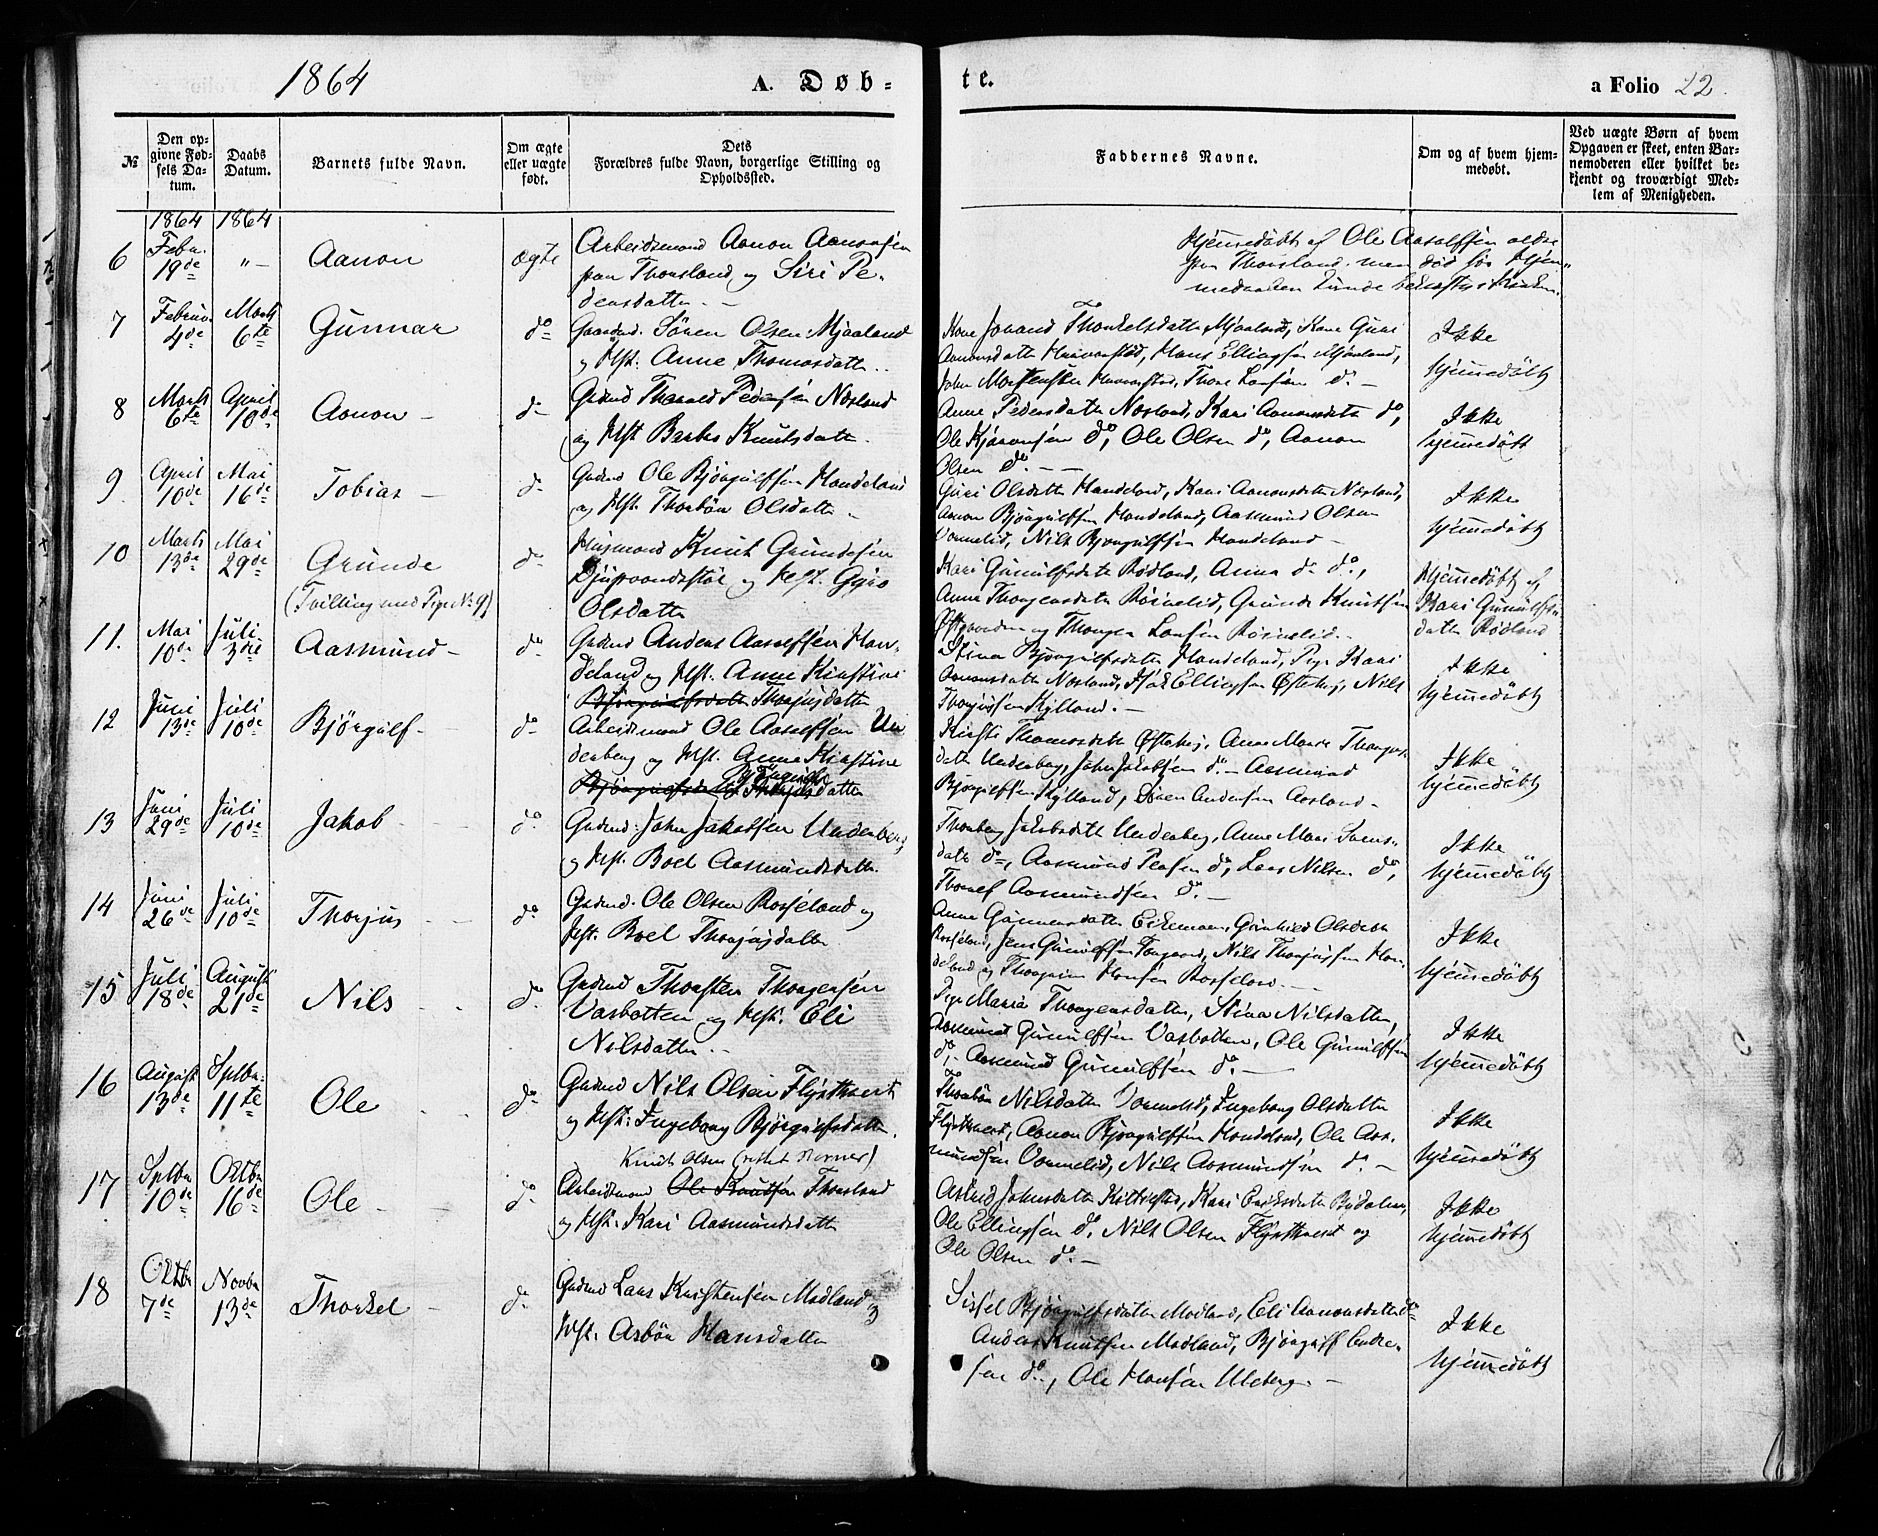 1864
A. Døb-
te.
a Folio 22.
№
Den opgivne Fødsels Datum.
Daabs Datum.
Barnets fulde Navn.
Om ægte eller uægte født.
Dets Forældres fulde Navn, borgerlige Stilling og Opholdssted.
Faddernes Navne.
Om og af hvem hjemmedøbt.
Ved uægte Børn af hvem Opgaven er skeet, enten Barnemoderen eller hvilket bekjendt og troværdigt Medlem af Menigheden.
1864 1864
6 Febr. 19de "- Aanon ægte
Arbeidsmand Aanon Aanonsen
fra Thorsland og Siri Pe-
dersdatter -
Hjemmedøbt af Ole Aasulfsen ældre
fra Thorsland, men død før Hjem-
medaaben kunde bekræftes i Kirken.
7 Februar 4de Marts 6te Gunnar do
Gaardmd. Søren Olsen Mjaaland
og Hst. Anne Thomasdatter.
Kone Jorand Thorkelsdatter Mjaaland, Kone Guri
Aanonsdatter, Hans Ellingsen Mjaaland,
John Mortensen, Thore Larsen do -
Ikke
hjemmedøbt
8 Marts 6te April 10de Aanon - do
Grdmd Tharald Pedersen Næsland
og Hst Barbro Knutsdatter.
Anne Pedersdatter Næsland, Kari Aanonsdatter do,
Ole do, Ole Olsen do, Aanon
Olsen do. -
Ikke
hjemmedøbt
9 April 10de Mai 16de Tobias - do
Grdmd Ole Bjørgulfsen Handeland
og Hst. Thorbør Olsdatter -
Guri Olsdatter Handeland, Kari Aanonsdatter Næsland,
Aanon Bjørgulfsen Handeland, Aasmund Olsen
Vormelid, Nils Bjørgulfsen Handeland -
Ikke
hjemmedøbt
10 Marts 13de Mai 29de Grunde do
(Tvilling med Pige No 9)
Husmand Knut Grundesen
og Hst. Gyro
Olsdatter
Kari Gunulfsdatter Rødland, Anna do do,
Anne Thorgersdatter Røinelid, Grunde Knutsen
og Thorger Larsen Røinelid. -
Hjemmedøbt af
Kari Gunulfs-
datter Rødland
11. Mai 10de Juli 3die Aasmund - do
Grdmd Anders Aasulfsen Han-
deland og Hst. Anne Kirstine
Bjørgulfsdatter Thorjusdatter
Stina Bjørgulfsdatter Handeland, Pige Kari
Aanonsdatter Næsland, Ellingsen Østehej, Nils
Thorjussen Kylland. -
Ikke
hjemmedøbt
12 Juni 13de Juli 10de Bjørgulf - do
Arbeidsmand Ole Aasulfsen Un-
derberg og Hst. Anne Kirstine
Bjørgulfsdatter Thorjusdatter
Kirsti Thomasdatter Østehej, Anne Marie Thorjus-
datter Underberg, John Jakobsen do - Aasmund
Bjørgulfsen Kylland, Søren Andersen Aasland -
Ikke
hjemmedøbt
13 Juni 29de Juli 10de Jakob - do
Grdmd. John Jakobsen Underberg
og Hst. Boel Aasmundsdatter.
Thorborg Jakobsdatter Underberg, Anne Marie Svens-
datter do, Aasmund do, Lars Nilsen do,
Thomas Aasmundsen do. -
Ikke
hjemmedøbt
14 Juni 26de Juli 10de Thorjus - do
Grdmd. Ole Olsen Rosseland og
Hst. Boel Thorjusdatter
Anne Gunnersdatter, Gunhild Olsdatter
Rosseland, Jens Gunulfsen, Nils Thorjussen Han-
deland og Hansen Rosseland. -
Ikke
hjemmedøbt
15 Juli 18de August 21de Nils - do
Grdmd Thorsten Thorgersen
Vasbotten og Hst. Eli
Nilsdatter. -
Pige Maria Thorgersdatter, Stina Nilsdatter,
Aasmund Gunulfsen Vasbotten, Ole Gunulfsen
do, Aasmund Gunulfsen do. -
Ikke
hjemmedøbt
16 August 13de Septbr. 11te Ole - do
Grdmd Nils Olsen Flystveit
og Hst. Ingeborg Bjørgulfsdatter.
Thorbør Nilsdatter Vormelid, Ingeborg Olsdatter
Flystveit, Aanon Bjørgulfsen Handeland, Ole Aas-
mundsen Vormelid, Nils Aasmundsen do. -
Ikke
hjemmedøbt
17 Septbr 10de Oktbr 16de Ole - do
Knudt Olsen (rettet Werner)
Arbeidsmand Ole Knudsen Thorsland
og Hst. Kari Aasmundsdatter
Astrid Johnsdatter, Kari Eriksdatter,
Ole Ellingsen do, Nils Olsen Flystveit og
Ole Olsen do. -
Ikke
hjemmedøbt
18 Oktbr 7de Novbr 13de Thorkel - do
Grdmd Lars Kristensen Modland og
Hst. Asbør Hansdatter
Sissel Bjørgulfsdatter Modland, Eli Aanonsdatter do
Anders Knutsen Modland, Bjørgulf Andre-
sen do, Ole Hansen Uleberg -
Ikke
hjemmedøbt